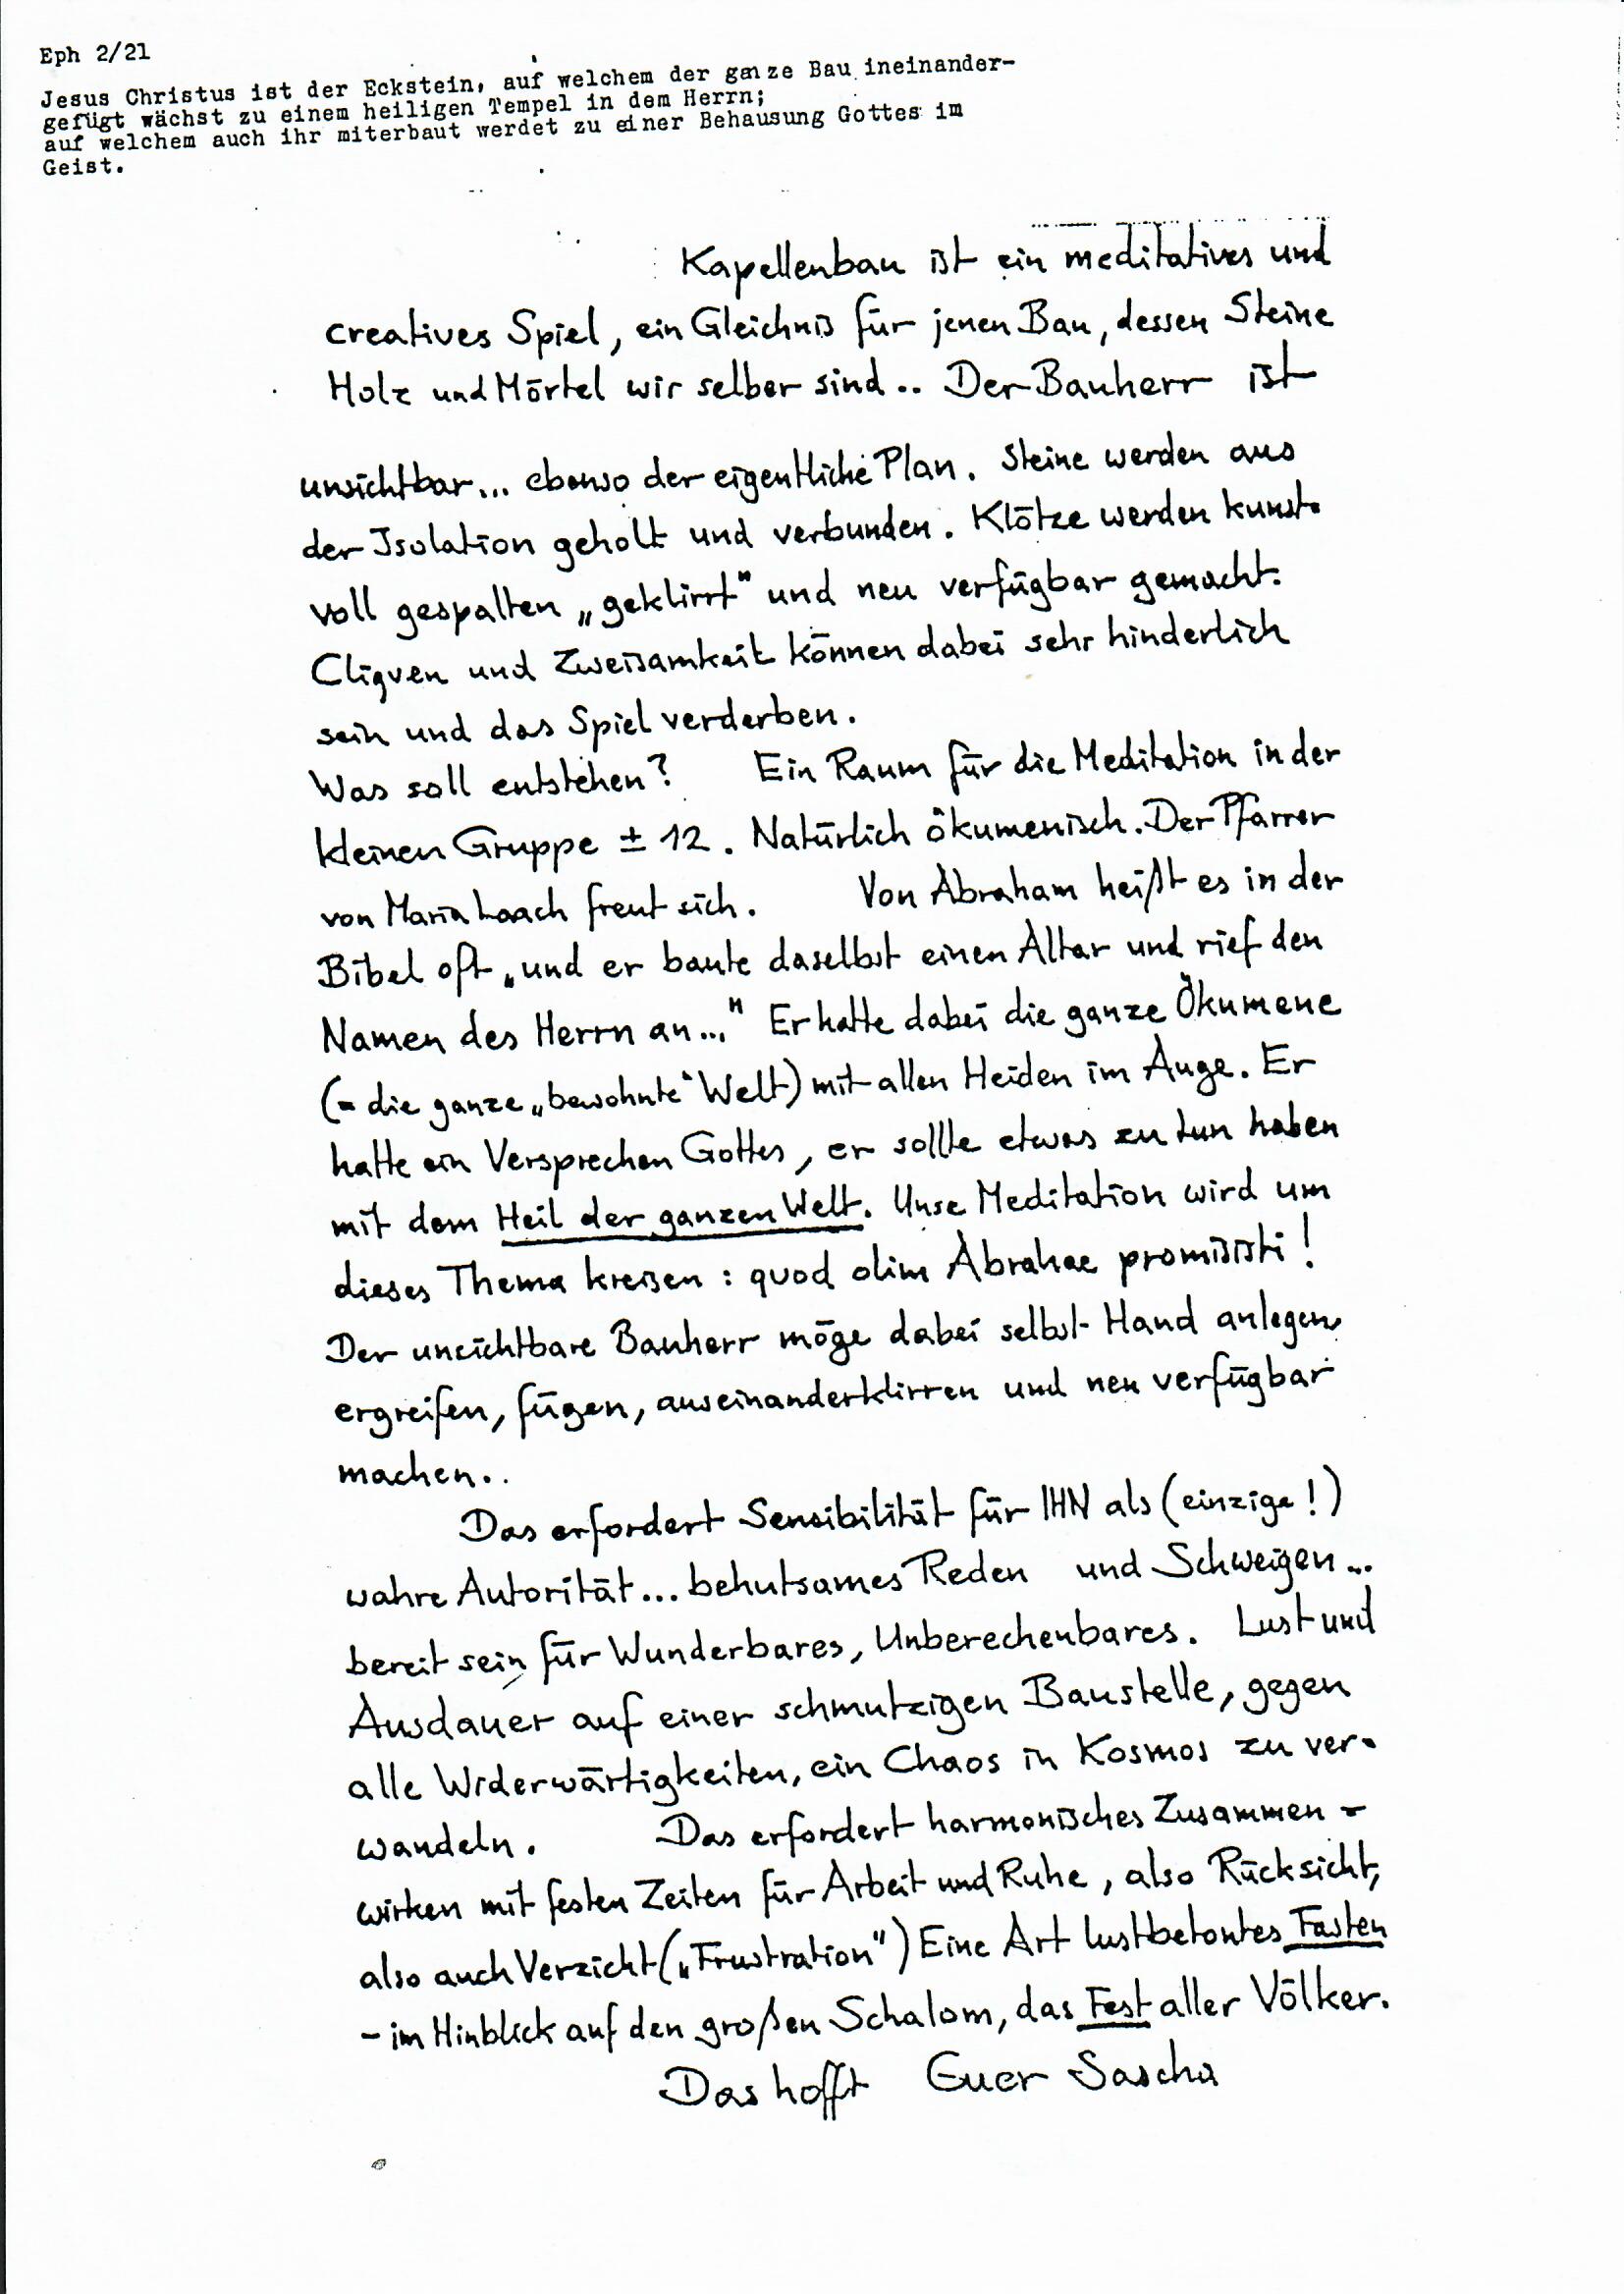 Eph 2/21
Jesus Christus ist der Eckstein, auf welchem der ganze Bau ineinander-
gefügt wächst zu einem heiligen Tempel in dem Herrn;
auf welchem auch ihr miterbaut werdet zu einer Behausung Gottes im
Geist.
Kapellenbau ist ein meditatives und
creatives Spiel, ein Gleichnis für jenen Bau, dessen Steine
Holz und Mörtel wir selber sind.. Der Bauherr ist
unsichtbar... ebenso der eigentliche Plan. Steine werden aus
der Isolation geholt und verbunden. Klötze werden kunst-
voll gespalten „geklirrt" und neu verfügbar gemacht.
Cliqven und Zweisamkeit können dabei sehr hinderlich
sein und das Spiel verderben.
Was soll entstehen? Ein Raum für die Meditation in der
kleinen Gruppe ± 12. Natürlich ökumenisch. Der Pfarrer
von Maria Laach freut sich. Von Abraham heißt es in der
Bibel oft „und er baute daselbst einen Altar und rief den
Namen des Herrn an..." Er hatte dabei die ganze Ökumene
(= die ganze „bewohnte" Welt) mit allen Heiden im Auge. Er
hatte ein Versprechen Gottes, er sollte etwas zu tun haben
mit dem Heil der ganzen Welt. Unse Meditation wird um
dieses Thema kreisen: quod olim Abrahae promisisti!
Der unsichtbare Bauherr möge dabei selbst Hand anlegen,
ergreifen, fügen, auseinanderklirren und neu verfügbar
machen..
Das erfordert Sensibilität für IHN als (einzige!)
wahre Autorität... behutsames Reden und Schweigen...
bereit sein für Wunderbares, Unberechenbares. Lust und
Ausdauer auf einer schmutzigen Baustelle, gegen
alle Widerwärtigkeiten, ein Chaos in Kosmos zu ver-
wandeln. Das erfordert harmonisches Zusammen-
wirken mit festen Zeiten für Arbeit und Ruhe, also Rücksicht,
also auch Verzicht („Frustration") Eine Art lustbetontes Fasten
- im Hinblick auf den großen Schalom, das Fest aller Völker.
Das hofft Euer Sascha